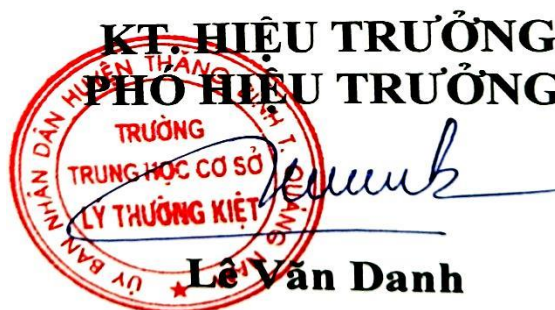 KT. HIỆU TRƯỞNG
PHÓ HIỆU TRƯỞNG
ỦY BAN NHÂN DÂN HUYỆN THĂNG BÌNH T. QUẢNG NAM
TRƯỜNG
TRUNG HỌC CƠ SỞ
LÝ THƯỜNG KIỆT
Lê Văn Danh